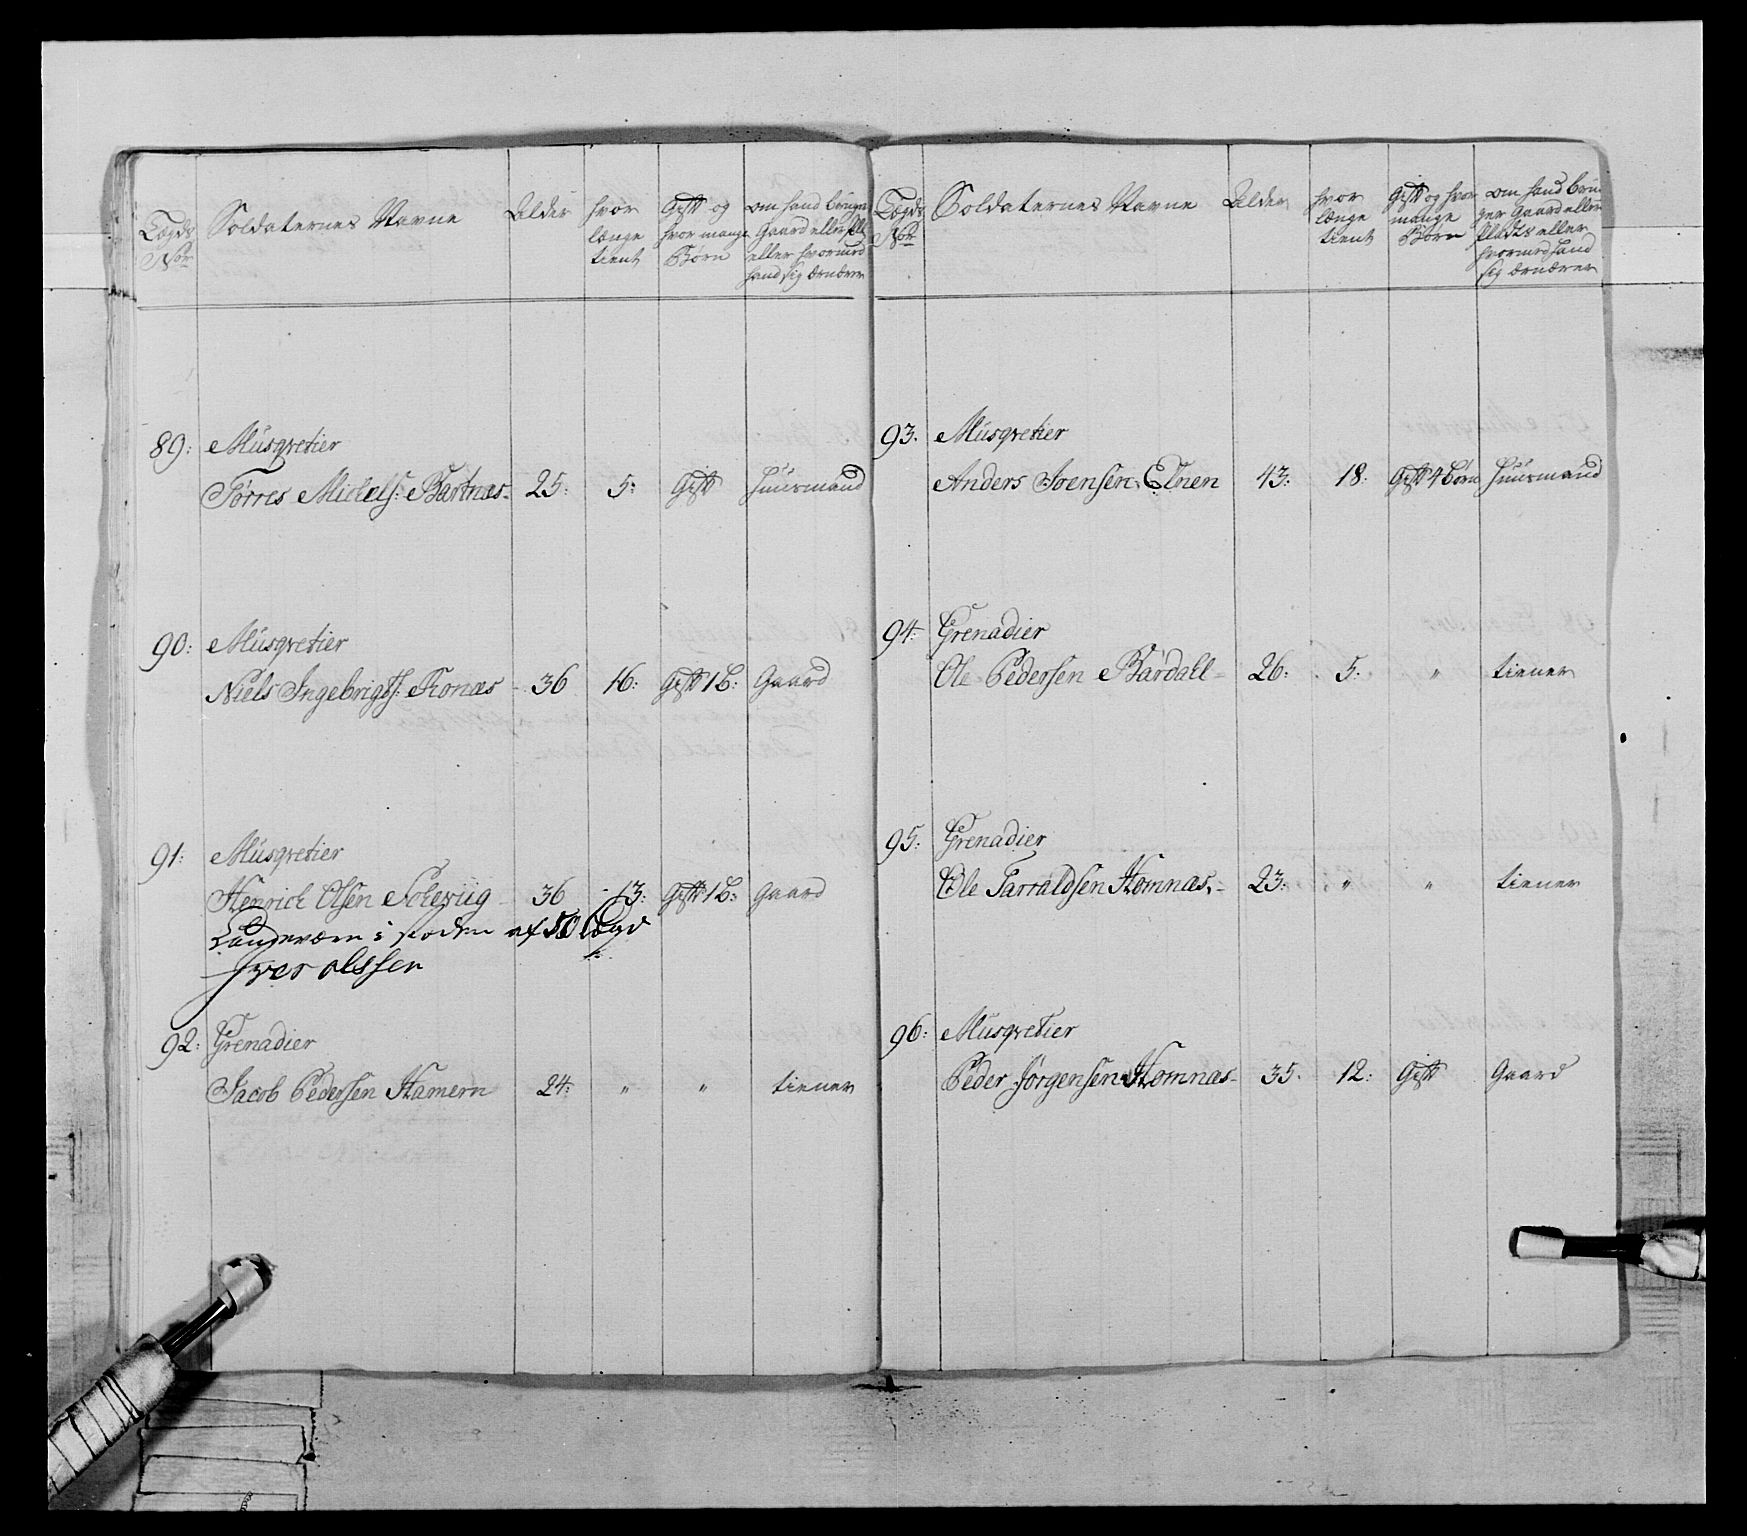 Lægds No
Soldaternes Navne
Alder
hvor længe tient
Gift og hvor mange Børn
om hand bruger Gaard eller eller hvormed hand sig ernærer
89: Musqvetier
Tørres Mickels: Bartnæs- 25: 5: Gift Huusmand
90: Musqvetier
Niels Ingebrigts: - 36 16: Gift 1 b: Gaard
91: Musqvetier
Henrich Olsen - 36 13: Gift 1 b: Gaard
Landeværn i steden af 50 Lægd
Iver olssen
92: Grenadier
Jacob Pedersen Hamern 24: " " tiener
Lægds No
Soldaternes Navne
Alder
hvor længe tient
Gift og hvor mange Børn
om hand bruger Gaard eller Plads eller hvormed hand sig ernærer
93. Musqvetier
Anders Joensen Elnen 43: 18: Gift 4 børn Huusmand
94: Grenadier
Ole Pedersen Bardall- 26: 5: " tiener
95: Grenadier
Ole Tarraldsen Homnæs,- 23: " " tiener
96: Musqvetier
Peder Jørgensen Homnæs- 35. 12: Gift Gaard